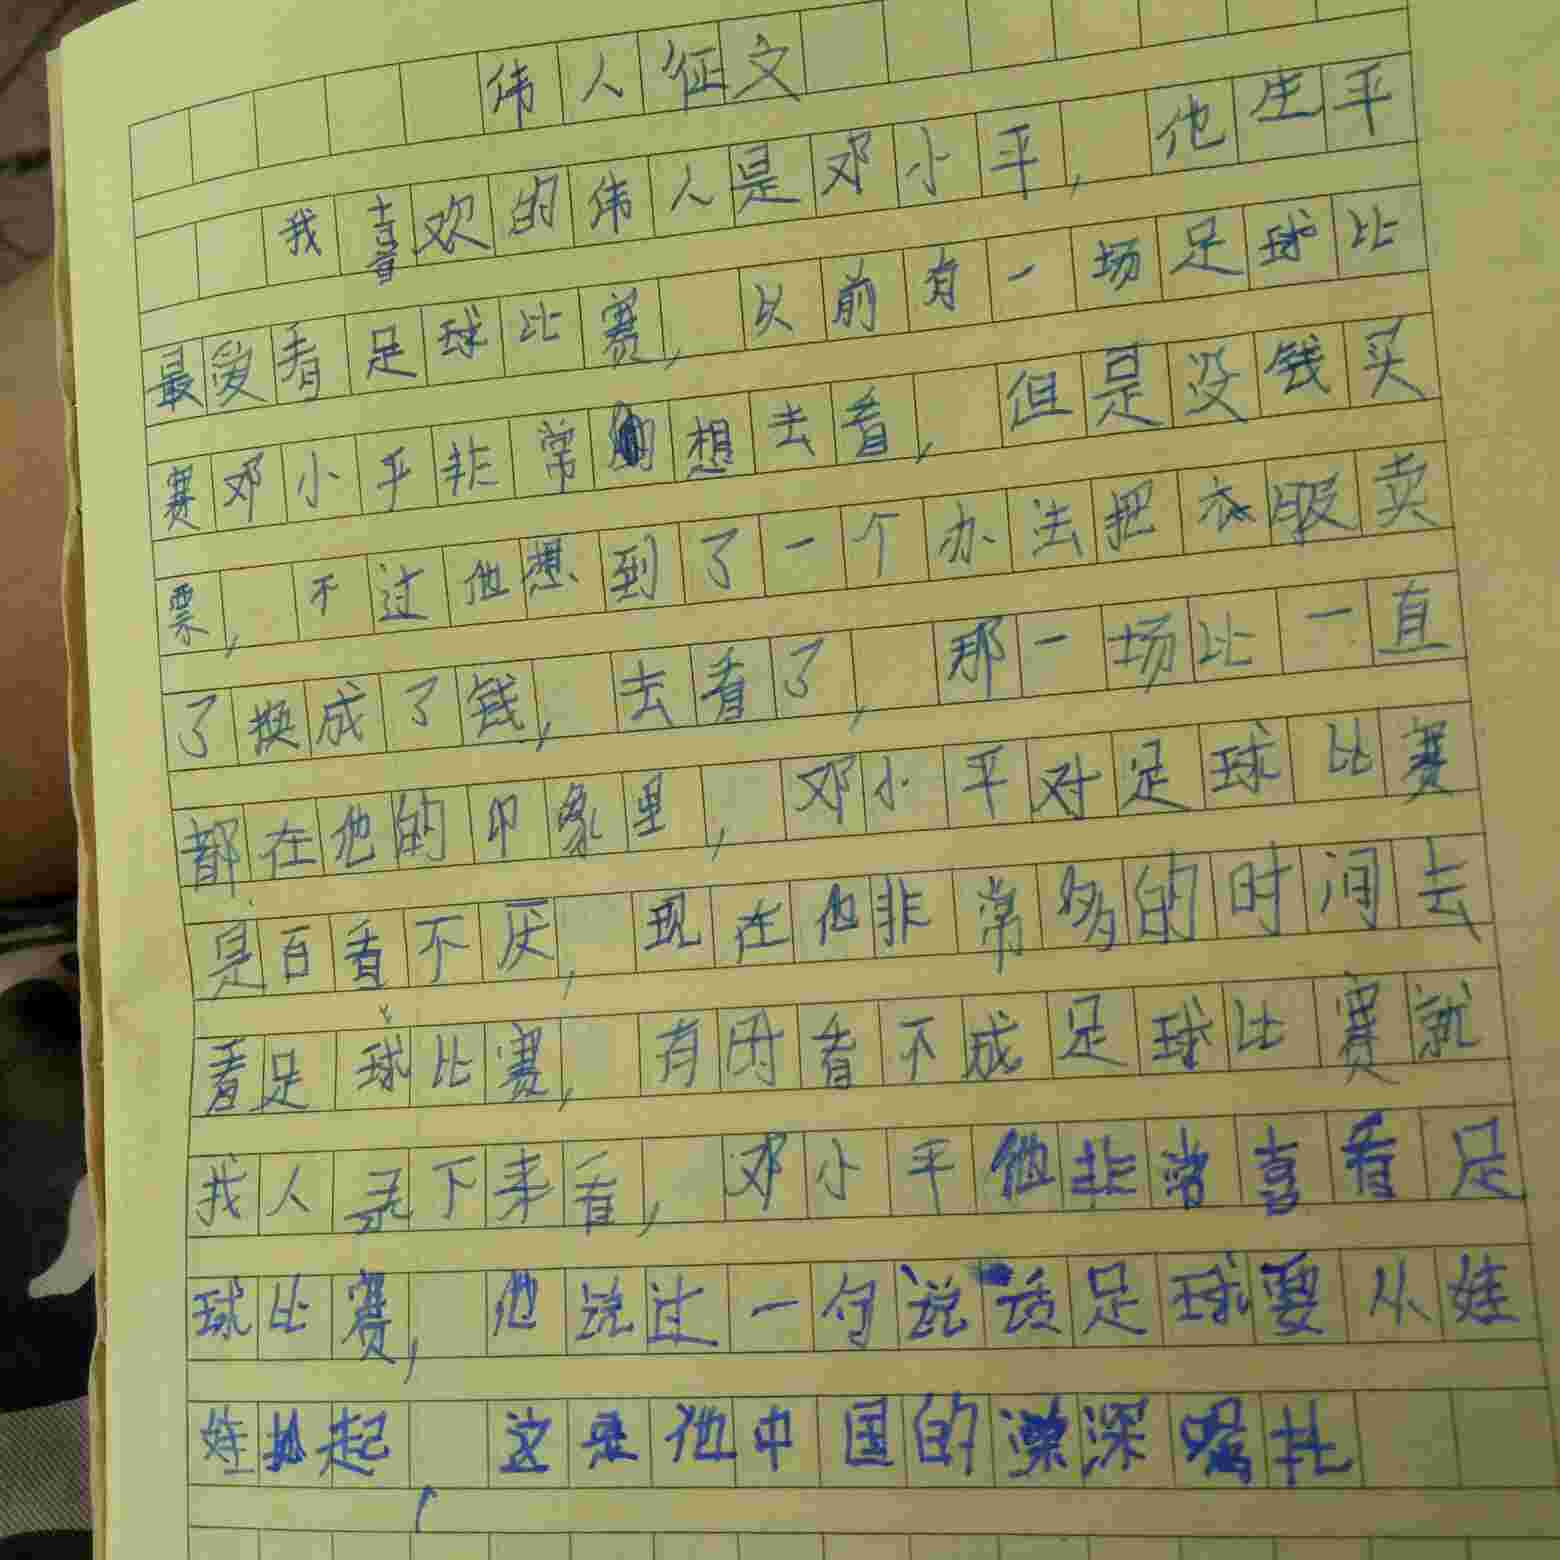 伟人征文
我喜欢的伟人是邓小平，他生平
最爱看足球比赛，以前有一场足球比
赛邓小平非常想去看，但是没钱买
票，不过他想到了一个办法把衣服卖
了换成了钱，去看了，那一场比一直
都在他的印象里，邓小平对足球比赛
是百看不厌，现在他非常多的时间去
看足球比赛，有时看不成足球比赛就
找人录下来看，邓小平他非常喜看足
球比赛，他说过一句说话足球要从娃
娃抓起，这是他中国的深深嘱托